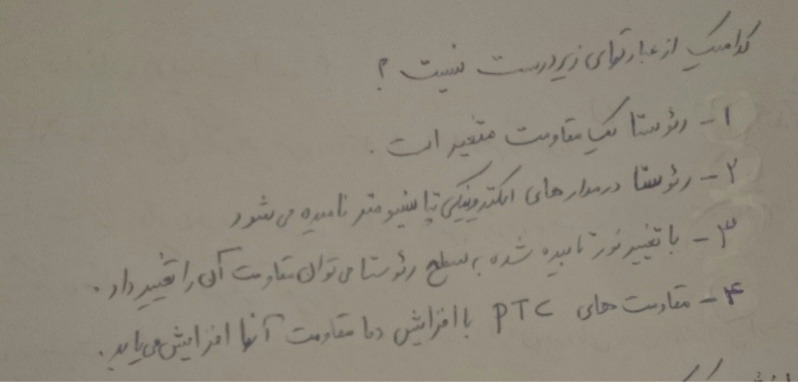 کدامیک از عبارتهای زیر درست نیست ؟
۱- رئوستا یک مقاومت متغیر است .
۲- رئوستا در مدارهای الکترونیکی پتانسیومتر نامیده می شود
۳- با تغییر نور تابیده شده به سطح رئوستا می توان مقاومت آن را تغییر داد .
۴- مقاومت های PTC با افزایش دما مقاومت آنها افزایش می یابد .